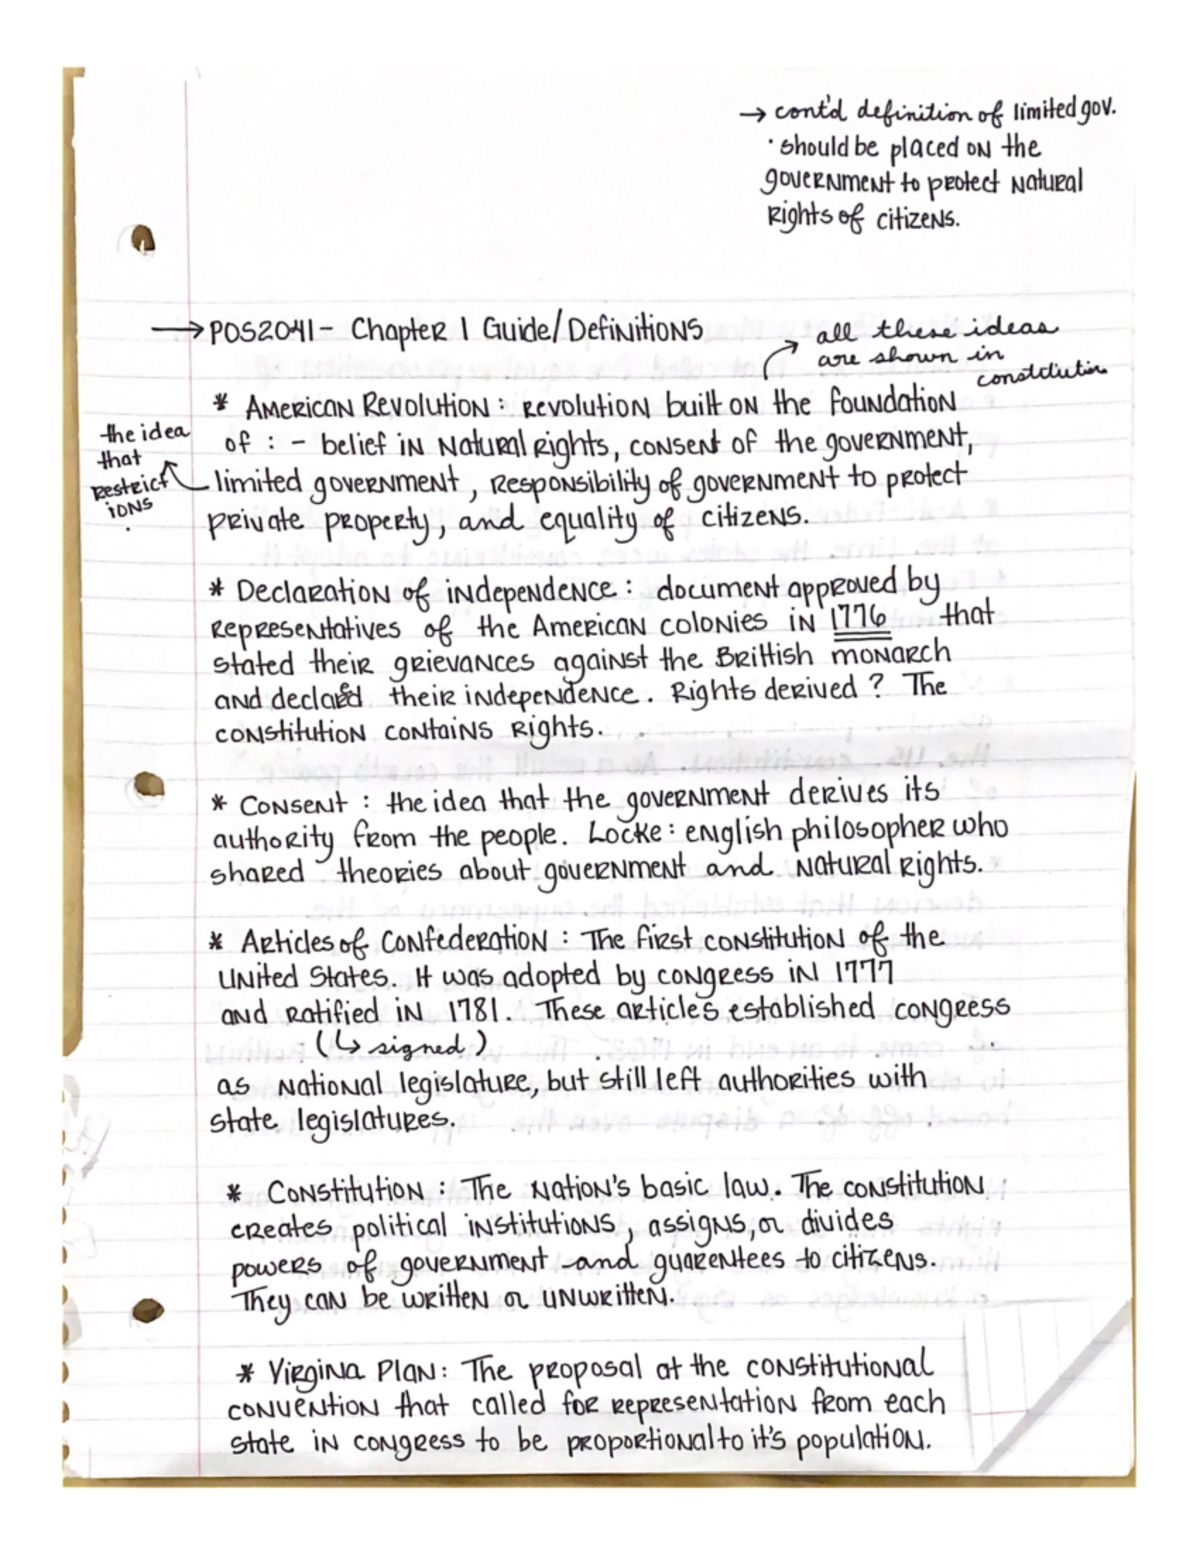 → cont'd definition of limited gov.
· should be placed on the
government to protect natural
rights of citizens.
→ POS2041 - Chapter 1 Guide/Definitions
all these ideas
are shown in
constitution
* American Revolution : revolution built on the foundation
of : - belief in natural rights, consent of the government,
limited government, responsibility of government to protect
private property, and equality of citizens.
the idea
that
restrict
ions
.
* Declaration of independence : document approved by
representatives of the American colonies in 1776 that
stated their grievances against the Brittish monarch
and declared their independence. Rights derived? The
constitution contains rights.
* Consent : the idea that the government derives its
authority from the people. Locke : english philosopher who
shared theories about government and natural rights.
* Articles of Confederation : The first constitution of the
United States. It was adopted by congress in 1777
and ratified in 1781. These articles established congress
(↳ signed)
as national legislature, but still left authorities with
state legislatures.
* Constitution : The nation's basic law. The constitution
creates political institutions, assigns, or divides
powers of government and guarentees to citizens.
They can be written or unwritten.
* Virgina Plan : The proposal at the constitutional
convention that called for representation from each
state in congress to be proportional to it's population.